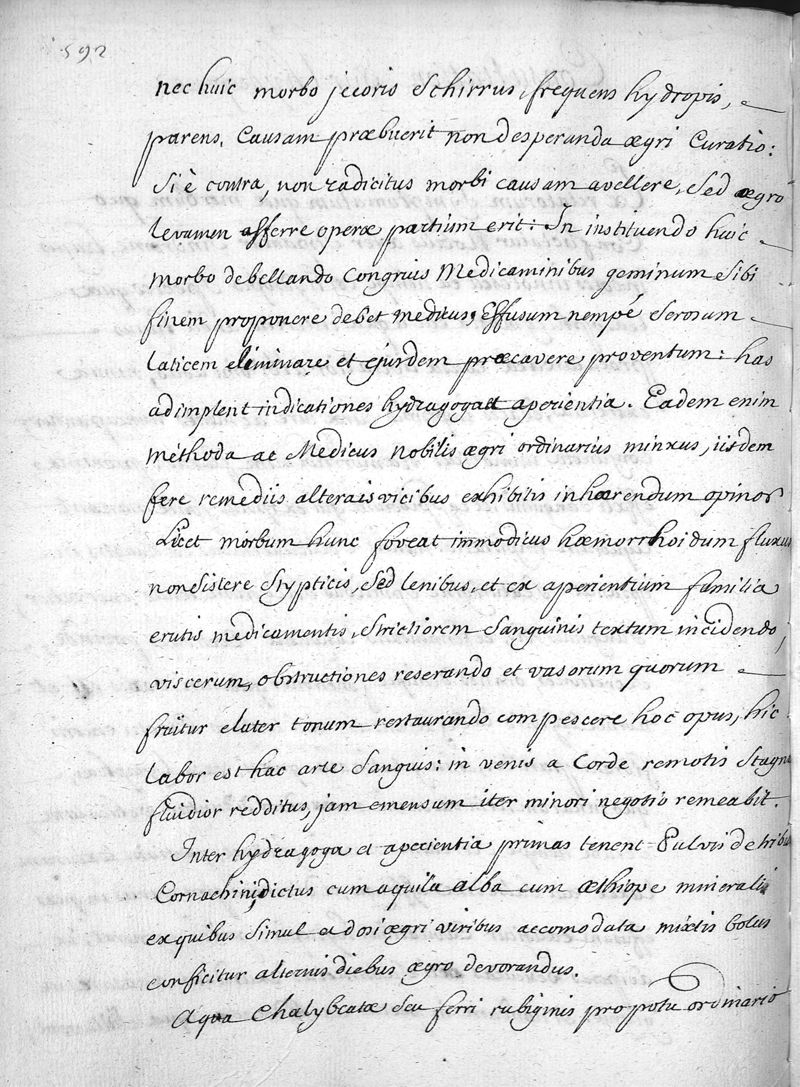 592
nec huic morbo jecoris Schirrus, frequens hydropis,
parens, Causam præbuerit non desperanda ægri Curatio:
Si è contra, non radicitus morbi causam avellere, Sed ægro
levamen afferre operæ partium erit: In instituendo huic
morbo debellando Congruis Medicaminibus geminum Sibi
finem proponere debet medicus, Effusum nempé Serosum
laticem eliminare et ejusdem præcavere proventum: has
adimplent indicationes hydragoga et aperientia. Eadem enim
méthoda ac Medicus nobilis ægri ordinarius minxus, iisdem
fere remediis alternis vicibus exhibitis inhærendum opinor
Licet morbum hunc foveat immodicus hæmorrhoidum fluxus
non Sistere Stypticis, Sed lenibus, et ex aperientium familia
erutis medicamentis, Strictiorem Sanguinis textum incidendo,
viscerum, obstructiones reserando et vasorum quorum
fruitur elater tonum restaurando compescere hoc opus, hic
labor est hac arte Sanguis: in venis a Corde remotis Stagna
fluidior redditus, jam emensum iter minori negotio remeabit.
Inter hydragoga et aperientia primas tenent Pulvis de tribus
Cornachini, dictus cum aquila alba cum æthiope minerali
ex quibus Simul ad dosi ægri viribus accomodata mixtis bolus
conficitur alternis diebus ægro devorandus.
Aqua Chalybeatæ Seu ferri rubiginis pro potu ordinario